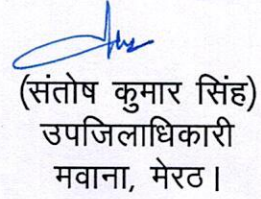 (संतोष कुमार सिंह)
उपजिलाधिकारी
मवाना, मेरठ।